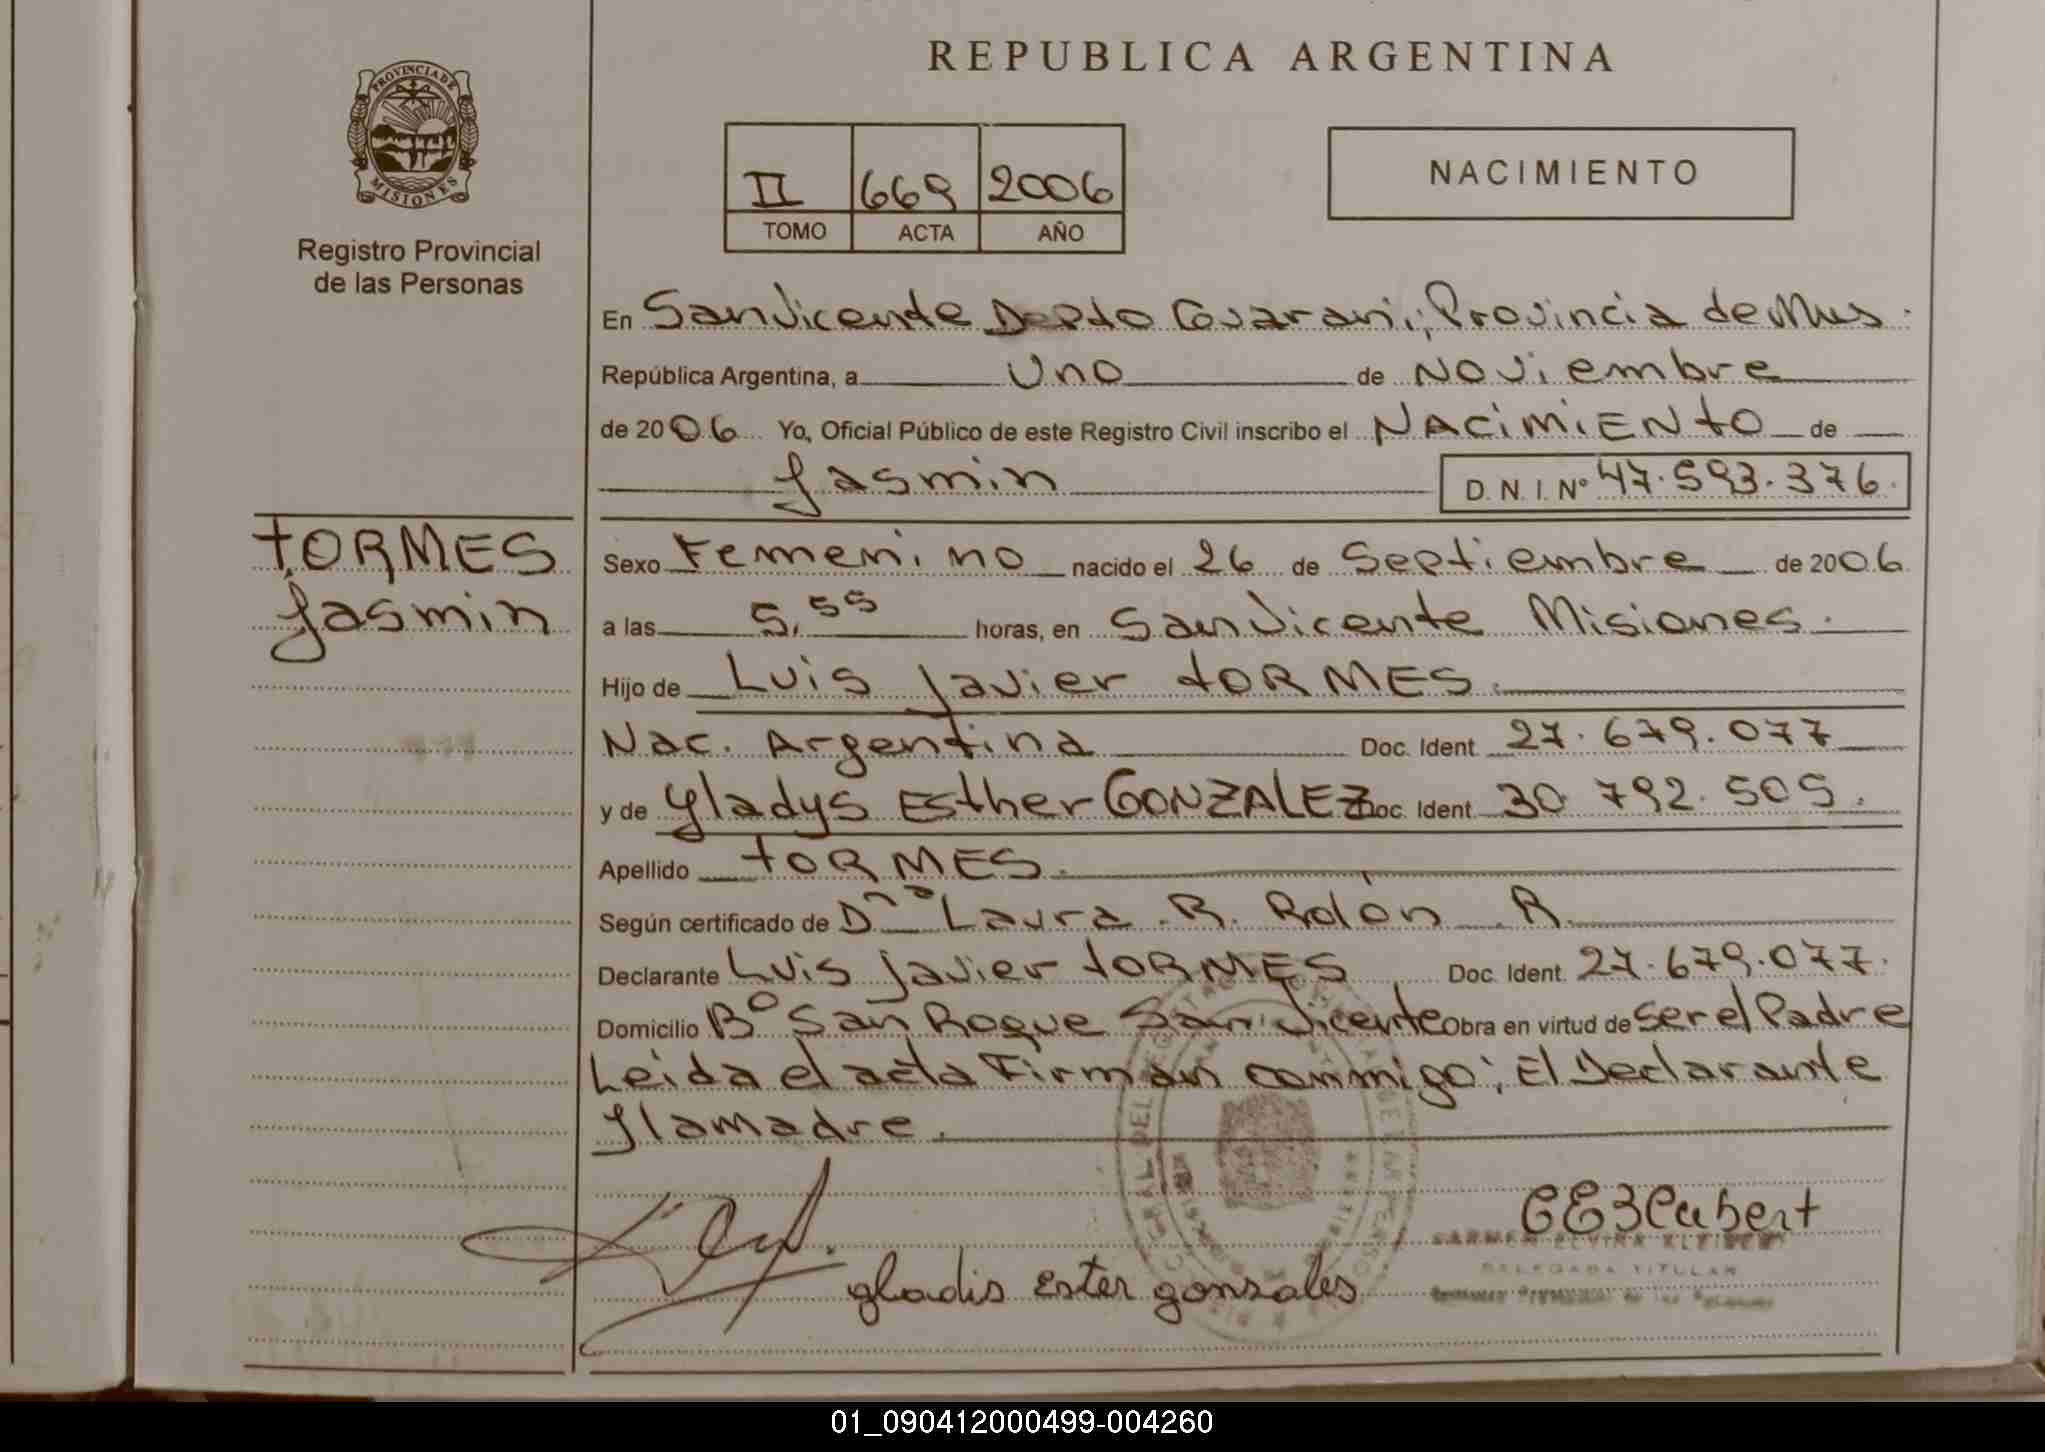 REPUBLICA ARGENTINA
PROVINCIA DE
MISIONES
Registro Provincial
de las Personas
II 669 2006
TOMO ACTA AÑO
NACIMIENTO
En San Vicente Depto Guarani, Provincia de Mns.
República Argentina, a uno de Noviembre
de 2006 Yo, Oficial Público de este Registro Civil inscribo el NACIMIENTO de
Jasmin D.N.I. Nº 47.593.376.
TORMES
Jasmin
Sexo Femenino nacido el 26 de Septiembre de 2006
a las 5,55 horas, en San Vicente Misiones.
Hijo de Luis Javier TORMES.
Nac. Argentina Doc. Ident. 27.679.077
y de Gladys Esther GONZALEZ Doc. Ident. 30.792.505.
Apellido TORMES.
Según certificado de Dña Laura R. Rolón R.
Declarante Luis Javier TORMES Doc. Ident. 27.679.077.
Domicilio Bº San Roque San Vicente Obra en virtud de ser el Padre
Leida el acta Firman conmigo; El Declarante
y la madre.
gladis ester gonsales
CARMEN ELVIRA
DELEGADA TITULAR
01_090412000499-004260